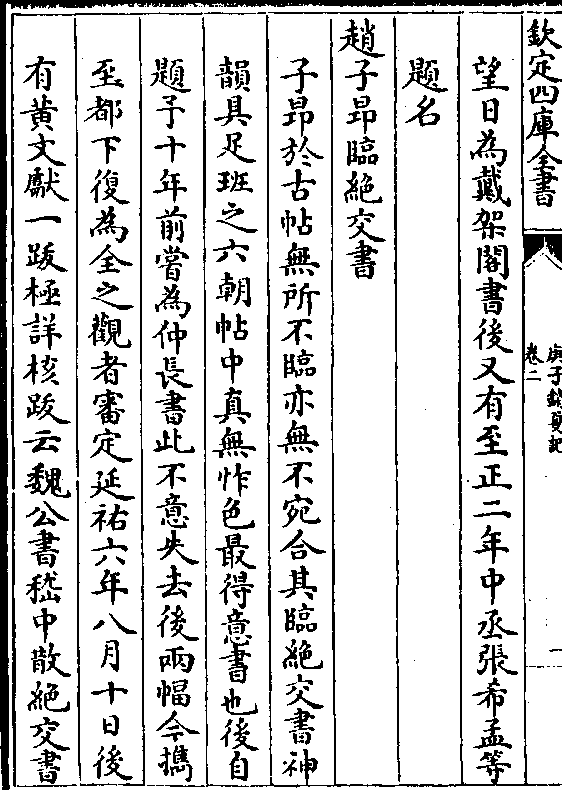 欽定四庫全書
庚子銷夏記
卷二
望日為戴架閣書後又有至正二年中丞張希孟等
題名
趙子昂臨絶交書
子昂於古帖無所不臨亦無不宛合其臨絶交書神
韻具足班之六朝帖中真無怍色最得意書也後自
題予十年前嘗為仲長書此不意失去後兩幅今攜
至都下復為全之觀者審定延祐六年八月十日後
有黄文獻一跋極詳核跋云魏公書嵇中散絶交書